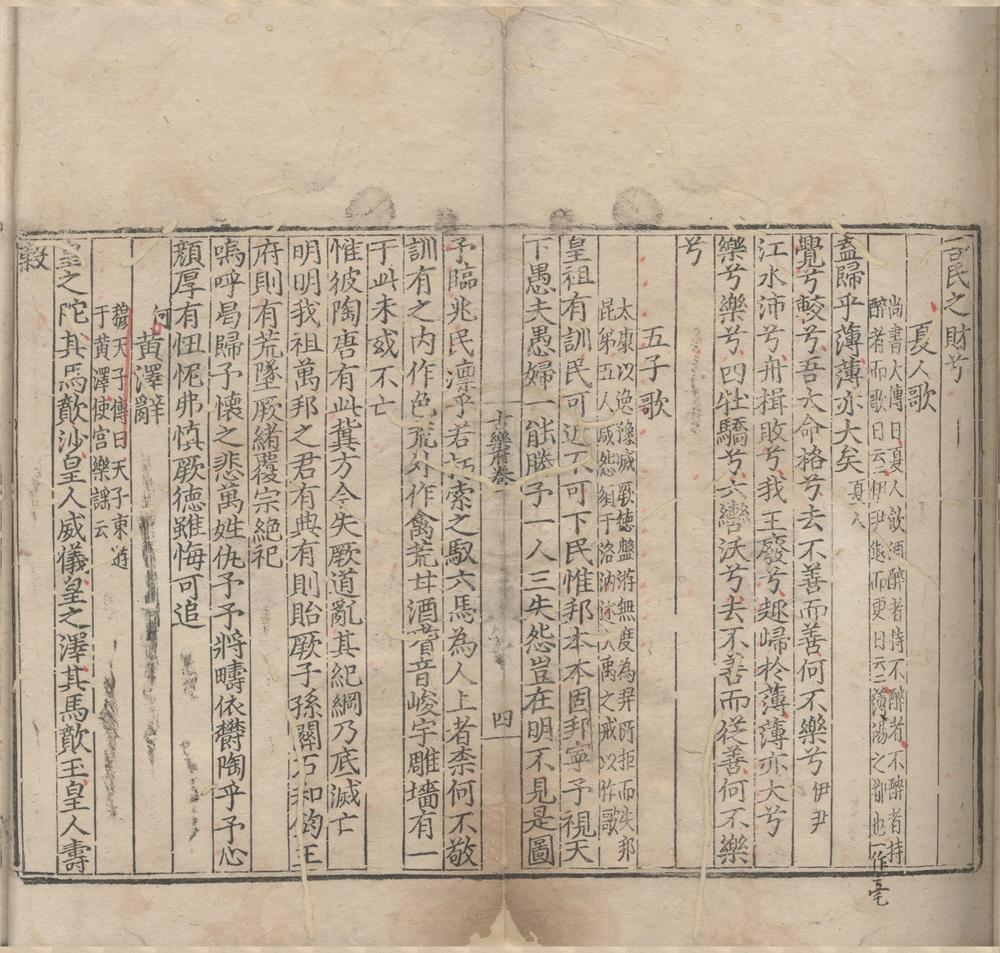 吾民之財兮
夏人歌
尚書大傳曰夏人飲酒醉者持不醉者不醉者持
醉者而歌曰云云伊尹退而更曰云云薄湯之都也一作亳
盍歸乎薄薄亦大矣夏人
覺兮較兮吾大命格兮去不善而善何不樂兮伊尹
江水沛兮舟楫敗兮我王廢兮趣歸於薄薄亦大兮
樂兮樂兮四牡驕兮六轡沃兮去不善而從善何不樂
兮
五子歌
太康以逸豫滅厥德盤游無度為羿所拒而失邦
昆弟五人咸怨須于洛汭述大禹之戒以作歌
皇祖有訓民可近不可下民惟邦本本固邦寧予視天
下愚夫愚婦一能勝予一人三失怨豈在明不見是圖
予臨兆民凛乎若朽索之馭六馬為人上者柰何不敬
訓有之內作色荒外作禽荒甘酒嗜音峻宇雕墻有一
于此未或不亡
惟彼陶唐有此冀方今失厥道亂其紀綱乃底滅亡
明明我祖萬邦之君有典有則貽厥子孫關石和鈞王
府則有荒墜厥緒覆宗絕祀
嗚呼曷歸予懷之悲萬姓仇予予將疇依欝陶乎予心
顏厚有忸怩弗慎厥德雖悔可追
黃澤辭
穆天子傳曰天子東遊
于黃澤使宮樂謠云
皇之陀其馬歕沙皇人威儀皇之澤其馬歕王皇人壽
穀
何
古樂府卷
四